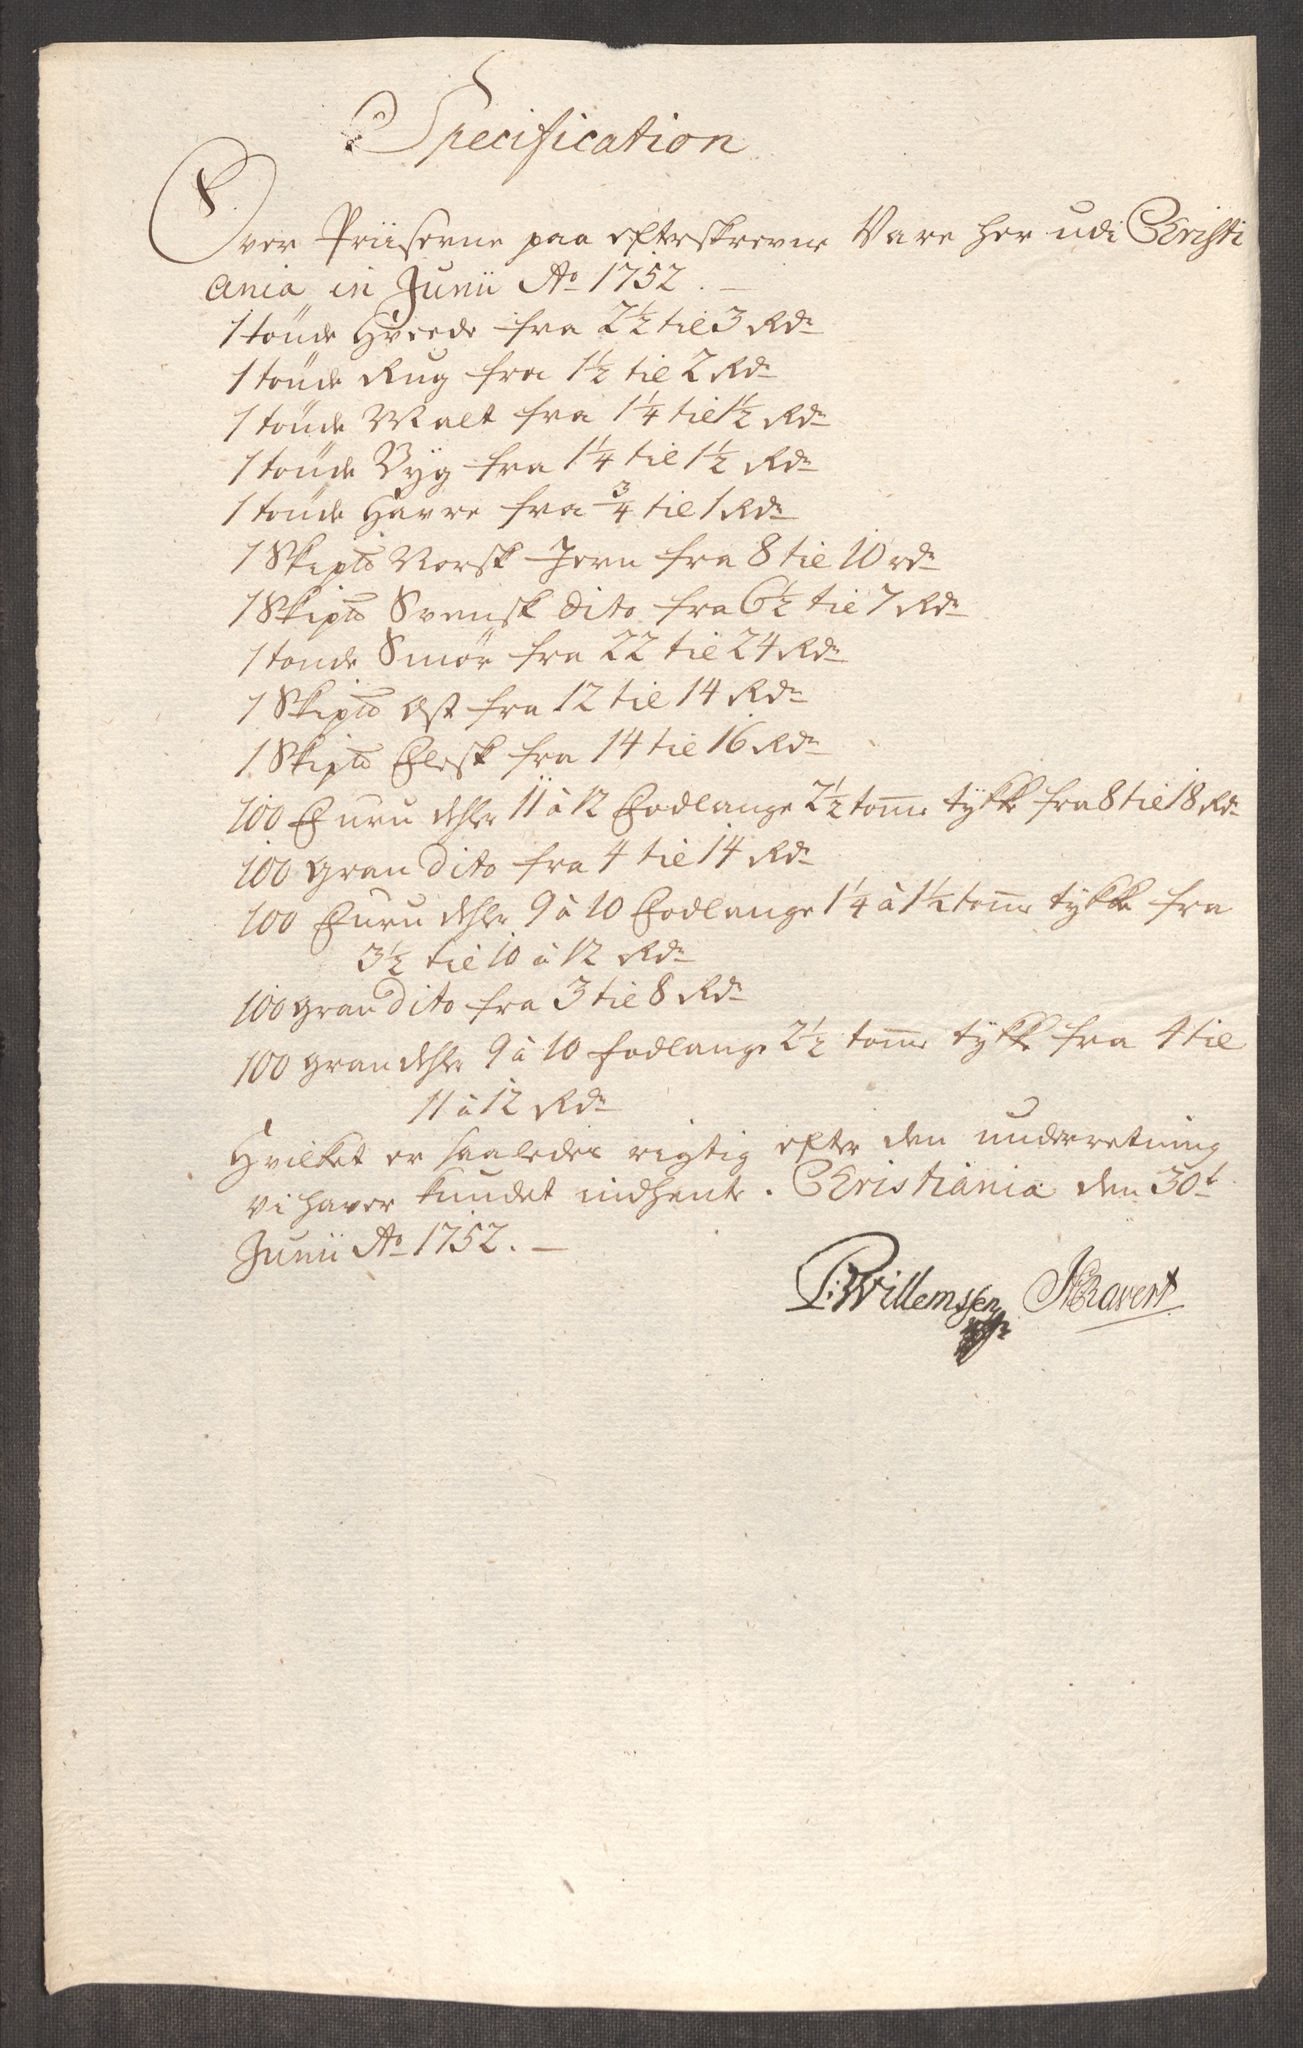 Specification
Over Priiserne paa efterskrevne Vare her udi Christi
ania in Junii Ao 1752. —
1 tönde Hvede fra 2½ til 3 Rdr
1 tönde Rug fra 1½ til 2 Rdr
1 tönde Malt fra 1¼ til 1½ Rdr
1 tönde Byg fra 1¼ til 1½ Rdr
1 tönde Havre fra ¾ til 1 Rdr
1 Skip℔ Norsk Jern fra 8 til 10 rdr
1 Skip℔ Svensk dito fra 6½ til 7 Rdr
1 tonde Smör fra 22 til 24 Rdr
1 Skip℔ Ost fra 12 til 14 Rdr
1 Skip℔ Flesk fra 14 til 16 Rdr
100 Furu dehler 11 à 12 Fodlange 2½ tomme tykke fra 8 til 18 Rdr
100 gran dito fra 4 til 14 Rdr
100 Furu dehler 9 à 10 Fodlange 1¼ à 1½ tomme tykke fra
3½ til 10 à 12 Rdr
100 gran dito fra 3 til 8 Rdr
100 gran dehler 9 à 10 fodlange 2½ tomme tykke fra 4 til
11 à 12 Rdr
Hvilket er saaledes rigtig efter den underretning
vi haver kundet indhente. Christiania den 30t
Junii Ao 1752. —
P: Willemssen Ravert